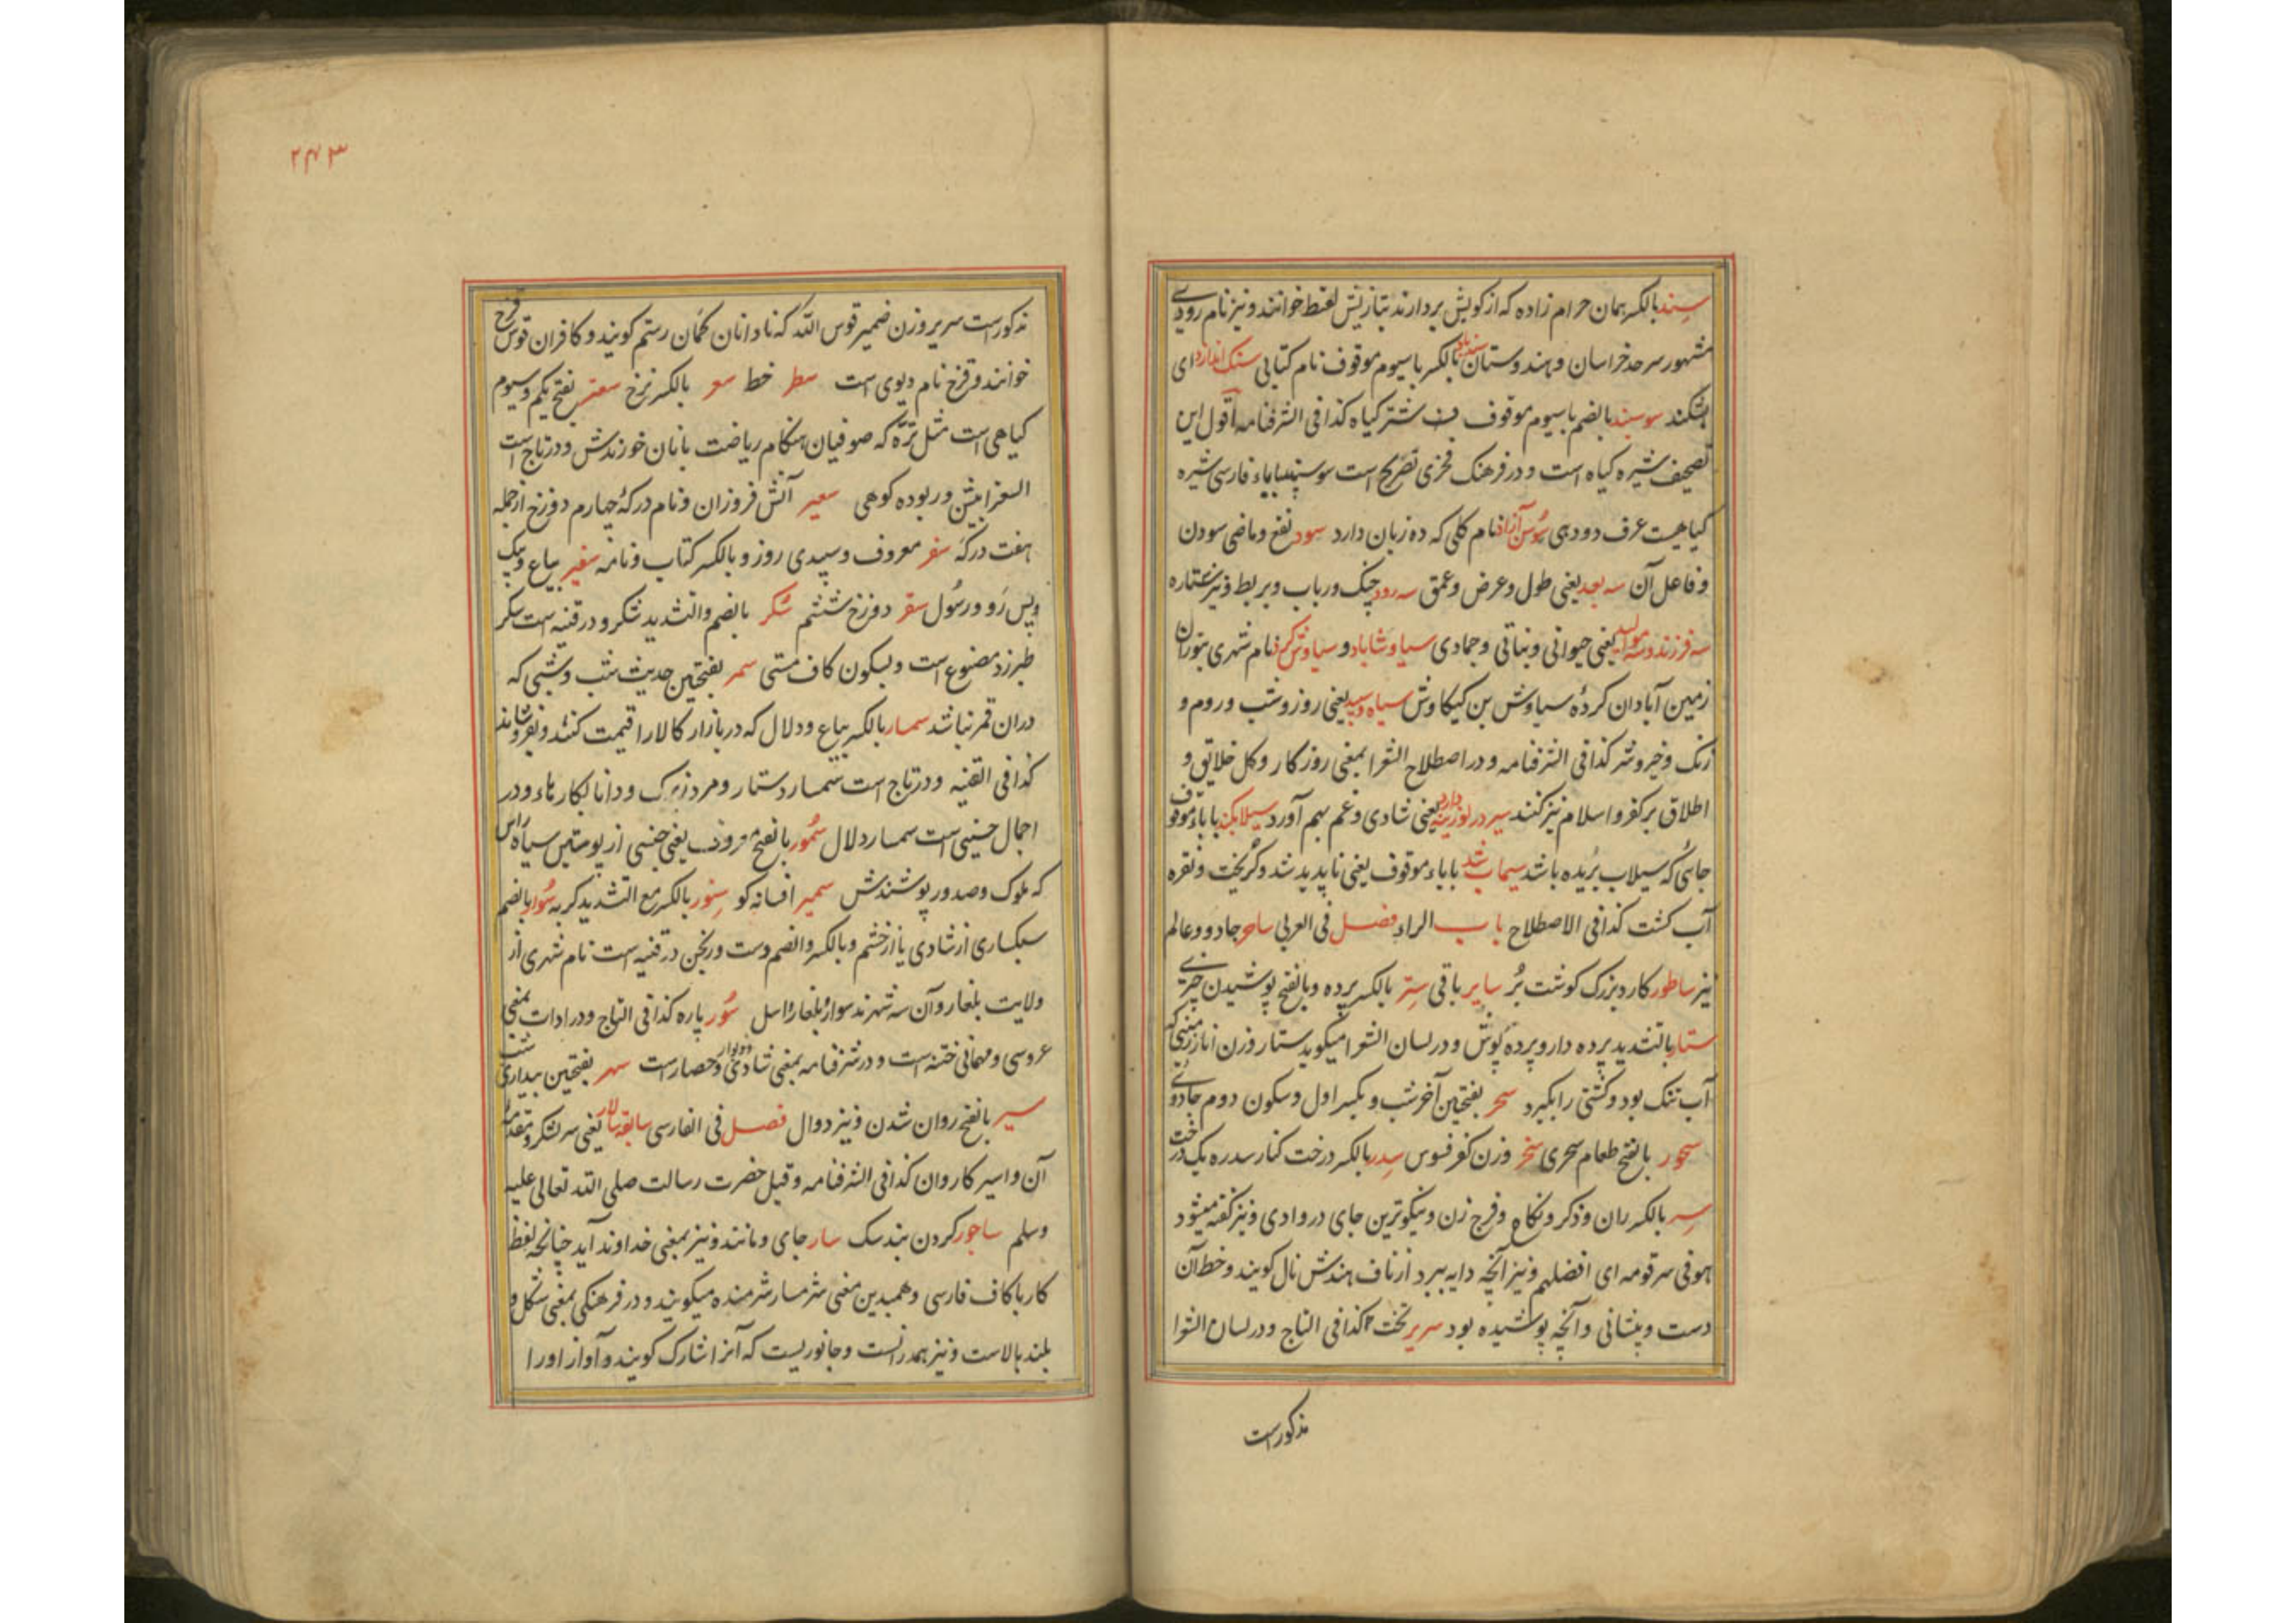 سِند بالکسر همان حرام زاده که از کویش بردارند بتازیش لقط خوانند و نیز نام رودی
مشهور سرحد خراسان و هندوستان سندباد بالکسر با سیوم موقوف نام کتابی سنک اندازد ای
بشکند سوسبند بالضم با سیوم موقوف شتر کیاه کذا فی الشرفنامه اقول این
تصحیف شیره کیاه است و در فرهنک فخری تصریح است سوسپند بباء فارسی شیره
کیاهیست عرف دودهی سوسن آزاد نام کلی که ده زبان دارد سود نفع و ماضی سودن
و فاعل آن سه بعد یعنی طول و عرض و عمق سه رود چنک و رباب و بربط و نیز ستاره
سه فرزند و سه موالید یعنی حیوانی و نباتی و جمادی سیاوشاباد و سیاوش کرد نام شهری بتوران
زمین آبادان کردهٔ سیاوش بن کیکاوش سیاه و سپید یعنی روز و شب و روم و
زنک و خیر و شر کذا فی الشرفنامه و در اصطلاح الشعرا بمعنی روزکار و کل خلایق و
اطلاق بر کفر و اسلام نیز کنند سیر در لوزینه دارد یعنی شادی و غم بهم آورد سیلاب کند با باء موقوف
جائی که سیلاب بریده باشد سیماب شد با باء موقوف یعنی ناپدید شد و کریخت و نقره
آب کشت کذا فی الاصطلاح باب الراء فصل فی العربی ساحر جادو و عالم
نیز ساطور کارد بزرک کوشت بُر سایر باقی سِتر بالکسر پرده و بالفتح پوشیدن چیزی
ستار بالتشدید پرده دار و پرده پوش و در لسان الشعرا میکوید ستار وزن انار زمینی که
آب تنک بود و کشتی را بکیرد سحر بفتحین آخر شب و بکسر اول و سکون دوم جادوئی
سحور بالفتح طعام سحری سخر وزن کفر فسوس سدر بالکسر درخت کنار سدره یک درخت
سِر بالکسر ران و ذکر و نکاح و فرج زن و نیکوترین جای در وادی و نیز کفته میشود
هو فی سر قومه ای افضلهم و نیز آنچه دایه ببرد از ناف هندش نال کویند و خط آن
دست و پیشانی و آنچه پوشیده بود سریر تخت کذا فی التاج و در لسان الشعرا
مذکور است
۲۴۳
مذکور است سریر وزن ضمیر قوس الله که نادانان کمان رستم کویند و کافران قوس قزح
خوانند و قزح نام دیوی است سطر خط سعر بالکسر نرخ سعتر بفتح یکم و سیوم
کیاهی است مثل تره که صوفیان هنکام ریاضت با نان خورندش و در تاج است
السعتر ابیش و ربوده کوهی سعیر آتش فروزان و نام درکهٔ چهارم دوزخ از جمله
هفت درکه سفر معروف و سپیدی روز و بالکسر کتاب و نامه سفیر بیاع و پیک
و پس رَو و رسُول سقر دوزخ ششم سُکر بالضم والتشدید شکر و در قنیه است سکر
طبرزد مصنوع است و بسکون کاف مستی سمر بفتحتین حدیث شب و شبی که
دران قمر نباشد سمسار بالکسر بیاع و دلال که در بازار کالا را قیمت کند و بفروشاند
کذا فی القنیه و در تاج است سمسار دستار و مرد زیرک و دانا بکارهاء و در
اجمال حسینی است سمسار دلال سمُور بالفتح معروف یعنی جنسی از پوستین سیاه راس
که ملوک و صدور پوشندش سمیر افسانه کو سِنور بالکسر مع التشدید کربه سُوار بالضم
سبکساری از شادی یا از خشم و بالکسر والضم دست ورنجن در قنیه است نام شهری از
ولایت بلغار و آن سه شهرند سوار و بلغار و اسل سُور پاره کذا فی التاج و در ادات بمعنی
عروسی و مهمانی ختنه است و در شرفنامه بمعنی شادی و دیوار و حصار است سهر بفتحتین بیداری شب
سیر بالفتح روان شدن و نیز دوال فصل فی الفارسی سابقه سالار یعنی سر لشکر و مقدمه
آن و اسیر کاروان کذا فی الشرفنامه و قیل حضرت رسالت صلی الله تعالی علیه
وسلم ساجور کردن بند سک سار جای و مانند و نیز بمعنی خداوند آید چنانچه لفظ
کار با کاف فارسی و همبدین معنی شرمسار شرمنده میکویند و در فرهنکی بمعنی شکل و
بلند بالاست و نیز بمعنی و جانوریست که آنرا شارک کویند و آواز او را